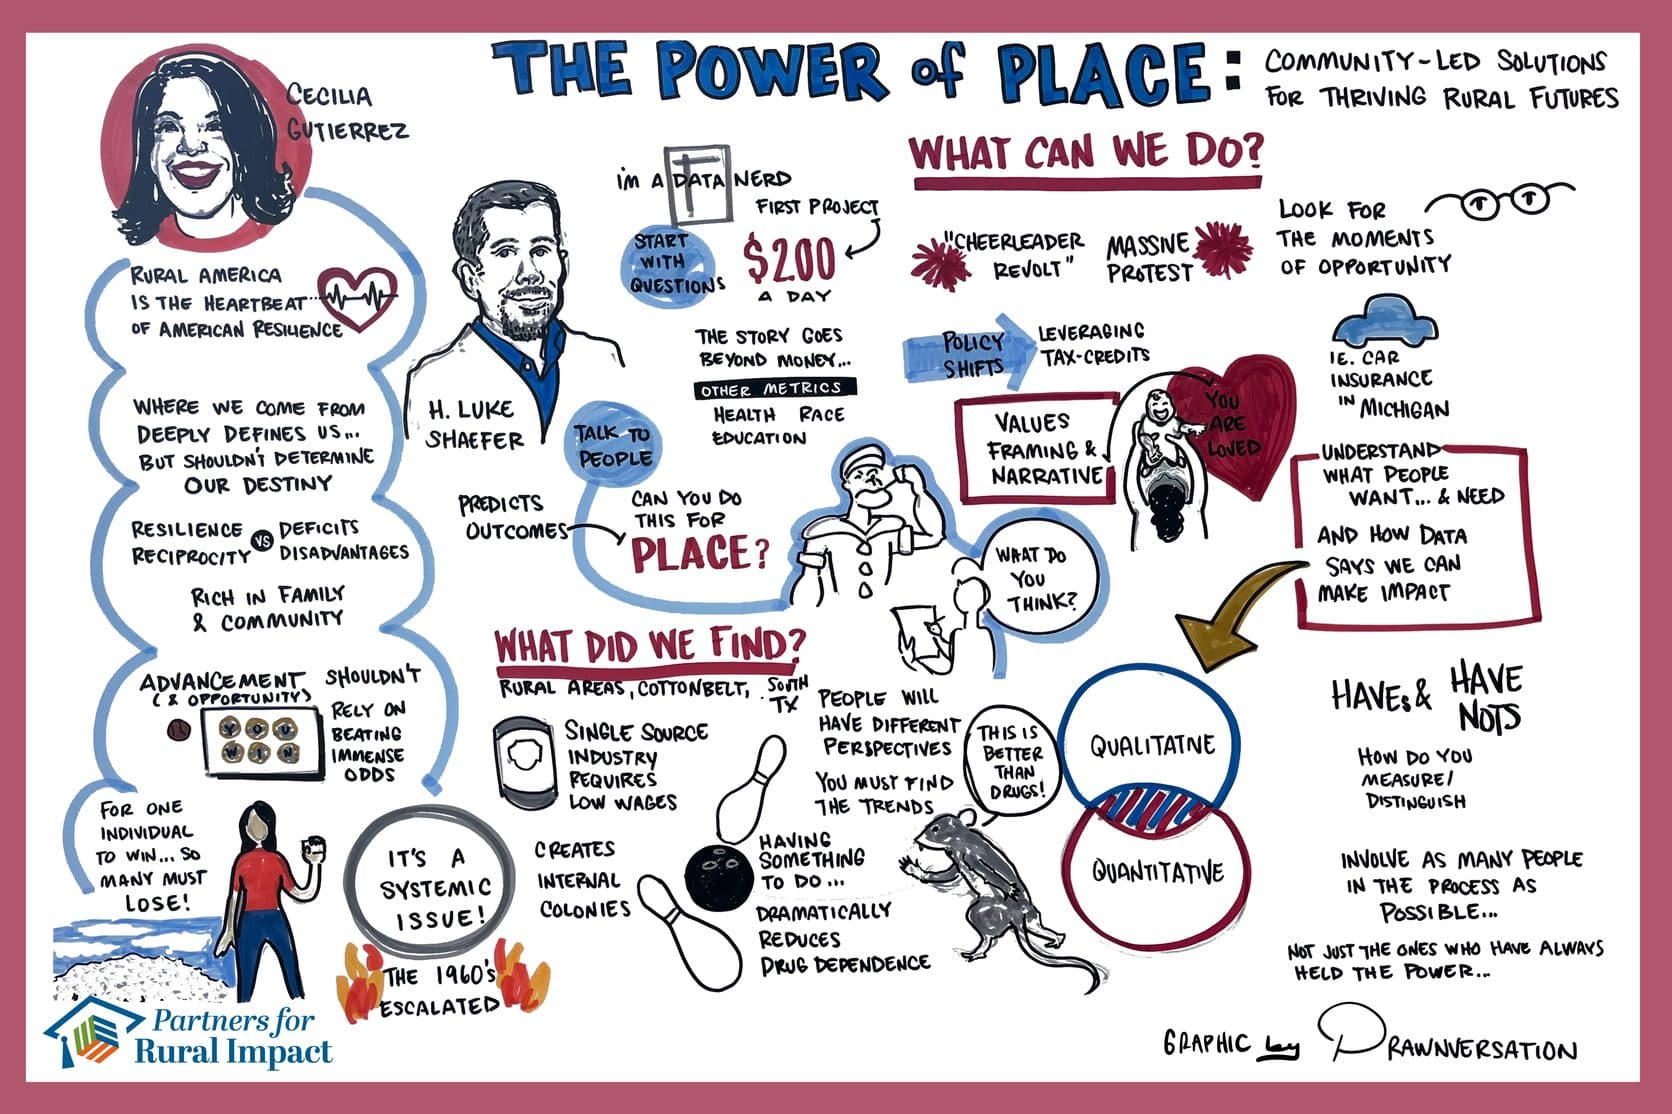 THE POWER of PLACE:
COMMUNITY-LED SOLUTIONS
FOR THRIVING RURAL FUTURES
CECILIA
GUTIERREZ
RURAL AMERICA
IS THE HEARTBEAT...
OF AMERICAN RESILIENCE
WHERE WE COME FROM
DEEPLY DEFINES US...
BUT SHOULDN'T DETERMINE
OUR DESTINY
RESILIENCE VS DEFICITS
RECIPROCITY DISADVANTAGES
RICH IN FAMILY
& COMMUNITY
ADVANCEMENT SHOULDN'T
(& OPPORTUNITY)
RELY ON
BEATING
IMMENSE
ODDS
YOU
WIN
FOR ONE
INDIVIDUAL
TO WIN... SO
MANY MUST
LOSE!
IT'S A
SYSTEMIC
ISSUE!
THE 1960's
ESCALATED
Partners for
Rural Impact
H. LUKE
SHAEFER
I'M A DATA NERD
FIRST PROJECT
START
WITH
QUESTIONS
$200
A DAY
THE STORY GOES
BEYOND MONEY...
OTHER METRICS
HEALTH RACE
EDUCATION
TALK TO
PEOPLE
PREDICTS
OUTCOMES
CAN YOU DO
THIS FOR
PLACE?
WHAT DO
YOU
THINK?
WHAT DID WE FIND?
RURAL AREAS, COTTONBELT, SOUTH
TX
SINGLE SOURCE
INDUSTRY
REQUIRES
LOW WAGES
CREATES
INTERNAL
COLONIES
PEOPLE WILL
HAVE DIFFERENT
PERSPECTIVES
YOU MUST FIND
THE TRENDS
HAVING
SOMETHING
TO DO...
DRAMATICALLY
REDUCES
DRUG DEPENDENCE
THIS IS
BETTER
THAN
DRUGS!
WHAT CAN WE DO?
"CHEERLEADER
REVOLT"
MASSIVE
PROTEST
LOOK FOR
THE MOMENTS
OF OPPORTUNITY
POLICY
SHIFTS
LEVERAGING
TAX-CREDITS
IE. CAR
INSURANCE
IN MICHIGAN
VALUES
FRAMING &
NARRATIVE
YOU
ARE
LOVED
UNDERSTAND
WHAT PEOPLE
WANT... & NEED
AND HOW DATA
SAYS WE CAN
MAKE IMPACT
QUALITATIVE
QUANTITATIVE
HAVEs & HAVE
NOTS
HOW DO YOU
MEASURE/
DISTINGUISH
INVOLVE AS MANY PEOPLE
IN THE PROCESS AS
POSSIBLE...
NOT JUST THE ONES WHO HAVE ALWAYS
HELD THE POWER...
GRAPHIC by DRAWNVERSATION